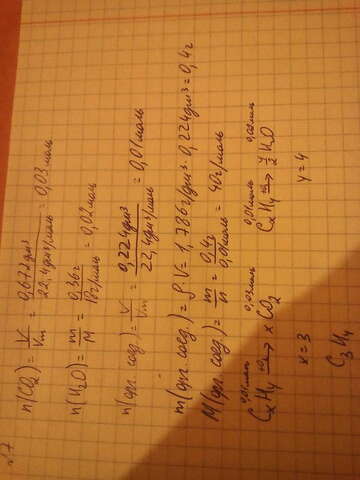 №7
n(CO₂) = V/Vm = 0,672дм³/22,4дм³/моль = 0,03моль
n(H₂O) = m/M = 0,36г/18г/моль = 0,02моль
n(орг. соед.) = V/Vm = 0,224дм³/22,4дм³/моль = 0,01моль
m(орг. соед.) = ρ·V = 1,786г/дм³·0,224дм³ = 0,4г
M(орг. соед.) = m/n = 0,4г/0,01моль = 40г/моль
0,01моль 0,03моль 0,01моль 0,02моль
CxHy +O₂→ xCO₂ CxHy +O₂→ y/2 H₂O
x=3 y=4
C₃H₄